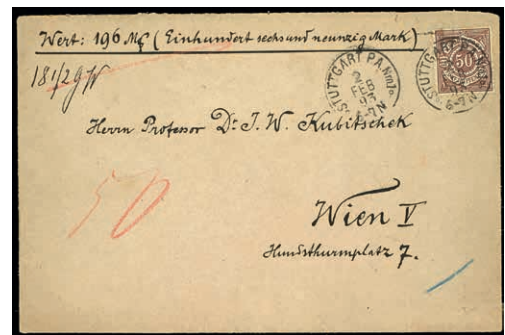 Wert: 196 Mk (Einhundert sechsundneunzig Mark)
18 1/2 g W
50
STUTTGART P.A.No
2
FEB
93
6-7N
STUTTGART P.A.No
6-7N
Herrn Professor Dr. J. W. Kubitschek
50
Wien V
Hundsthurmplatz 7.